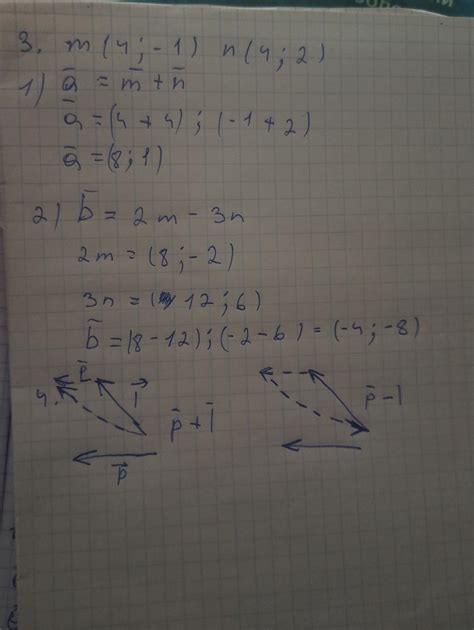 3. m(4;-1) n(4;2)
1) a̅ = m̅ + n̅
a̅ = (4+4);(-1+2)
a̅ = (8;1)
2) b̅ = 2m - 3n
2m = (8;-2)
3n = (12;6)
b̅ = (8-12);(-2-6) = (-4;-8)
4. p̅ l⃗ p̅ + l̅ p̅ - l
p̅